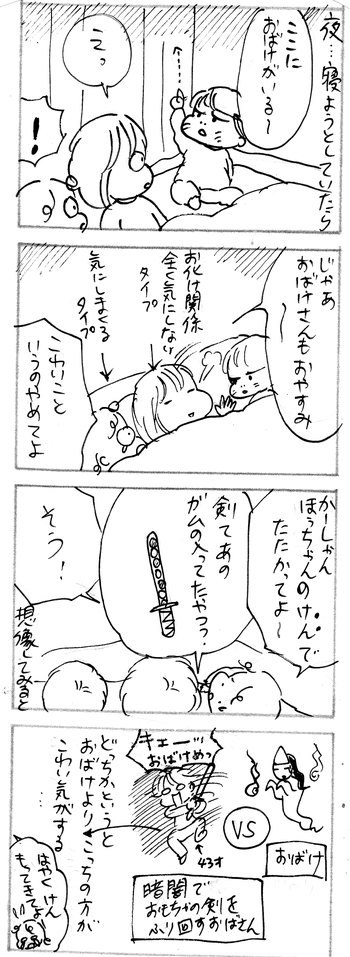 夜…寝ようとしていたら
ここに
おばけがいる〜
えっ
!
じゃあ
おばけさんもおやすみ〜
お化け関係
全く気にしない
タイプ
気にしまくる
タイプ
こわいこと
いうのやめてよ
かーしゃん
ぼっちゃんのけんで
たたかってよ〜
剣てあの
ガムの入ってたやつっ?
そう!
想像してみると
おばけ
VS
キェーッ
おばけめっ
43才
暗闇で
おもちゃの剣を
ふり回すおばさん
どっちかというと
おばけよりこっちの方が
こわい気がする
…
はやくけん
もってきてよ